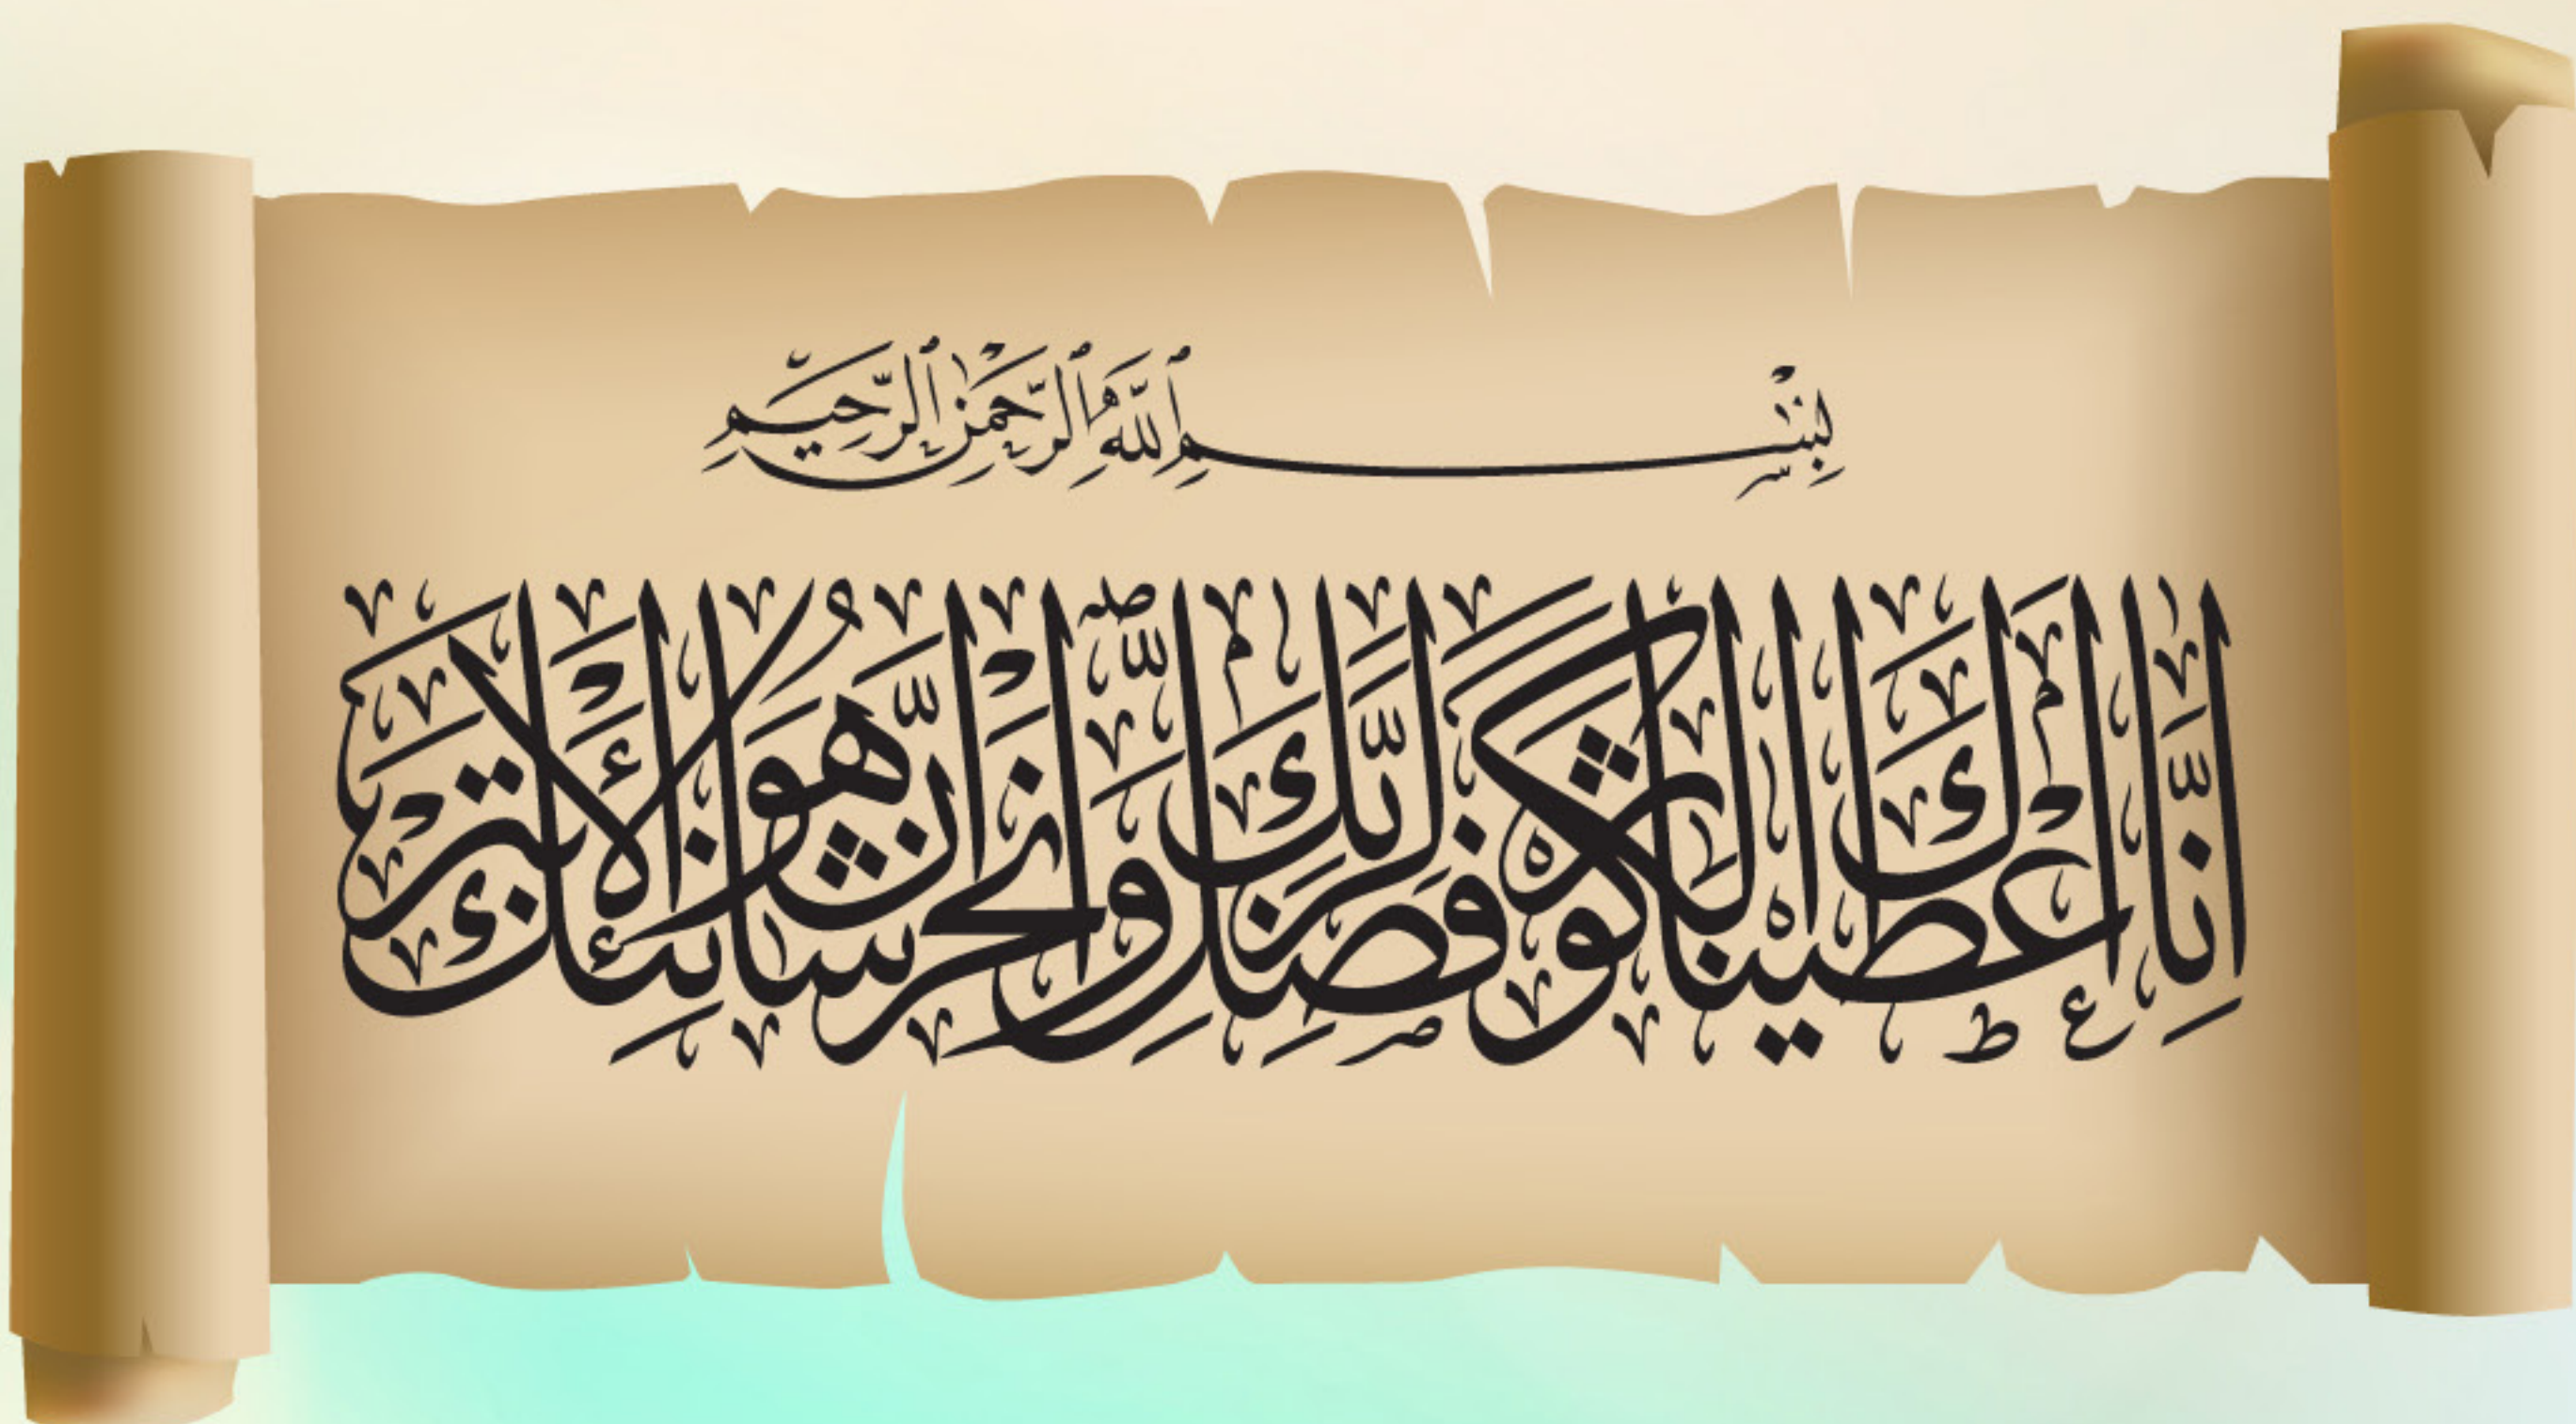 بِسْمِ ٱللَّهِ ٱلرَّحْمَٰنِ ٱلرَّحِيمِ
إِنَّا أَعْطَيْنَاكَ الْكَوْثَرَ فَصَلِّ لِرَبِّكَ وَانْحَرْ إِنَّ شَانِئَكَ هُوَ الْأَبْتَرُ